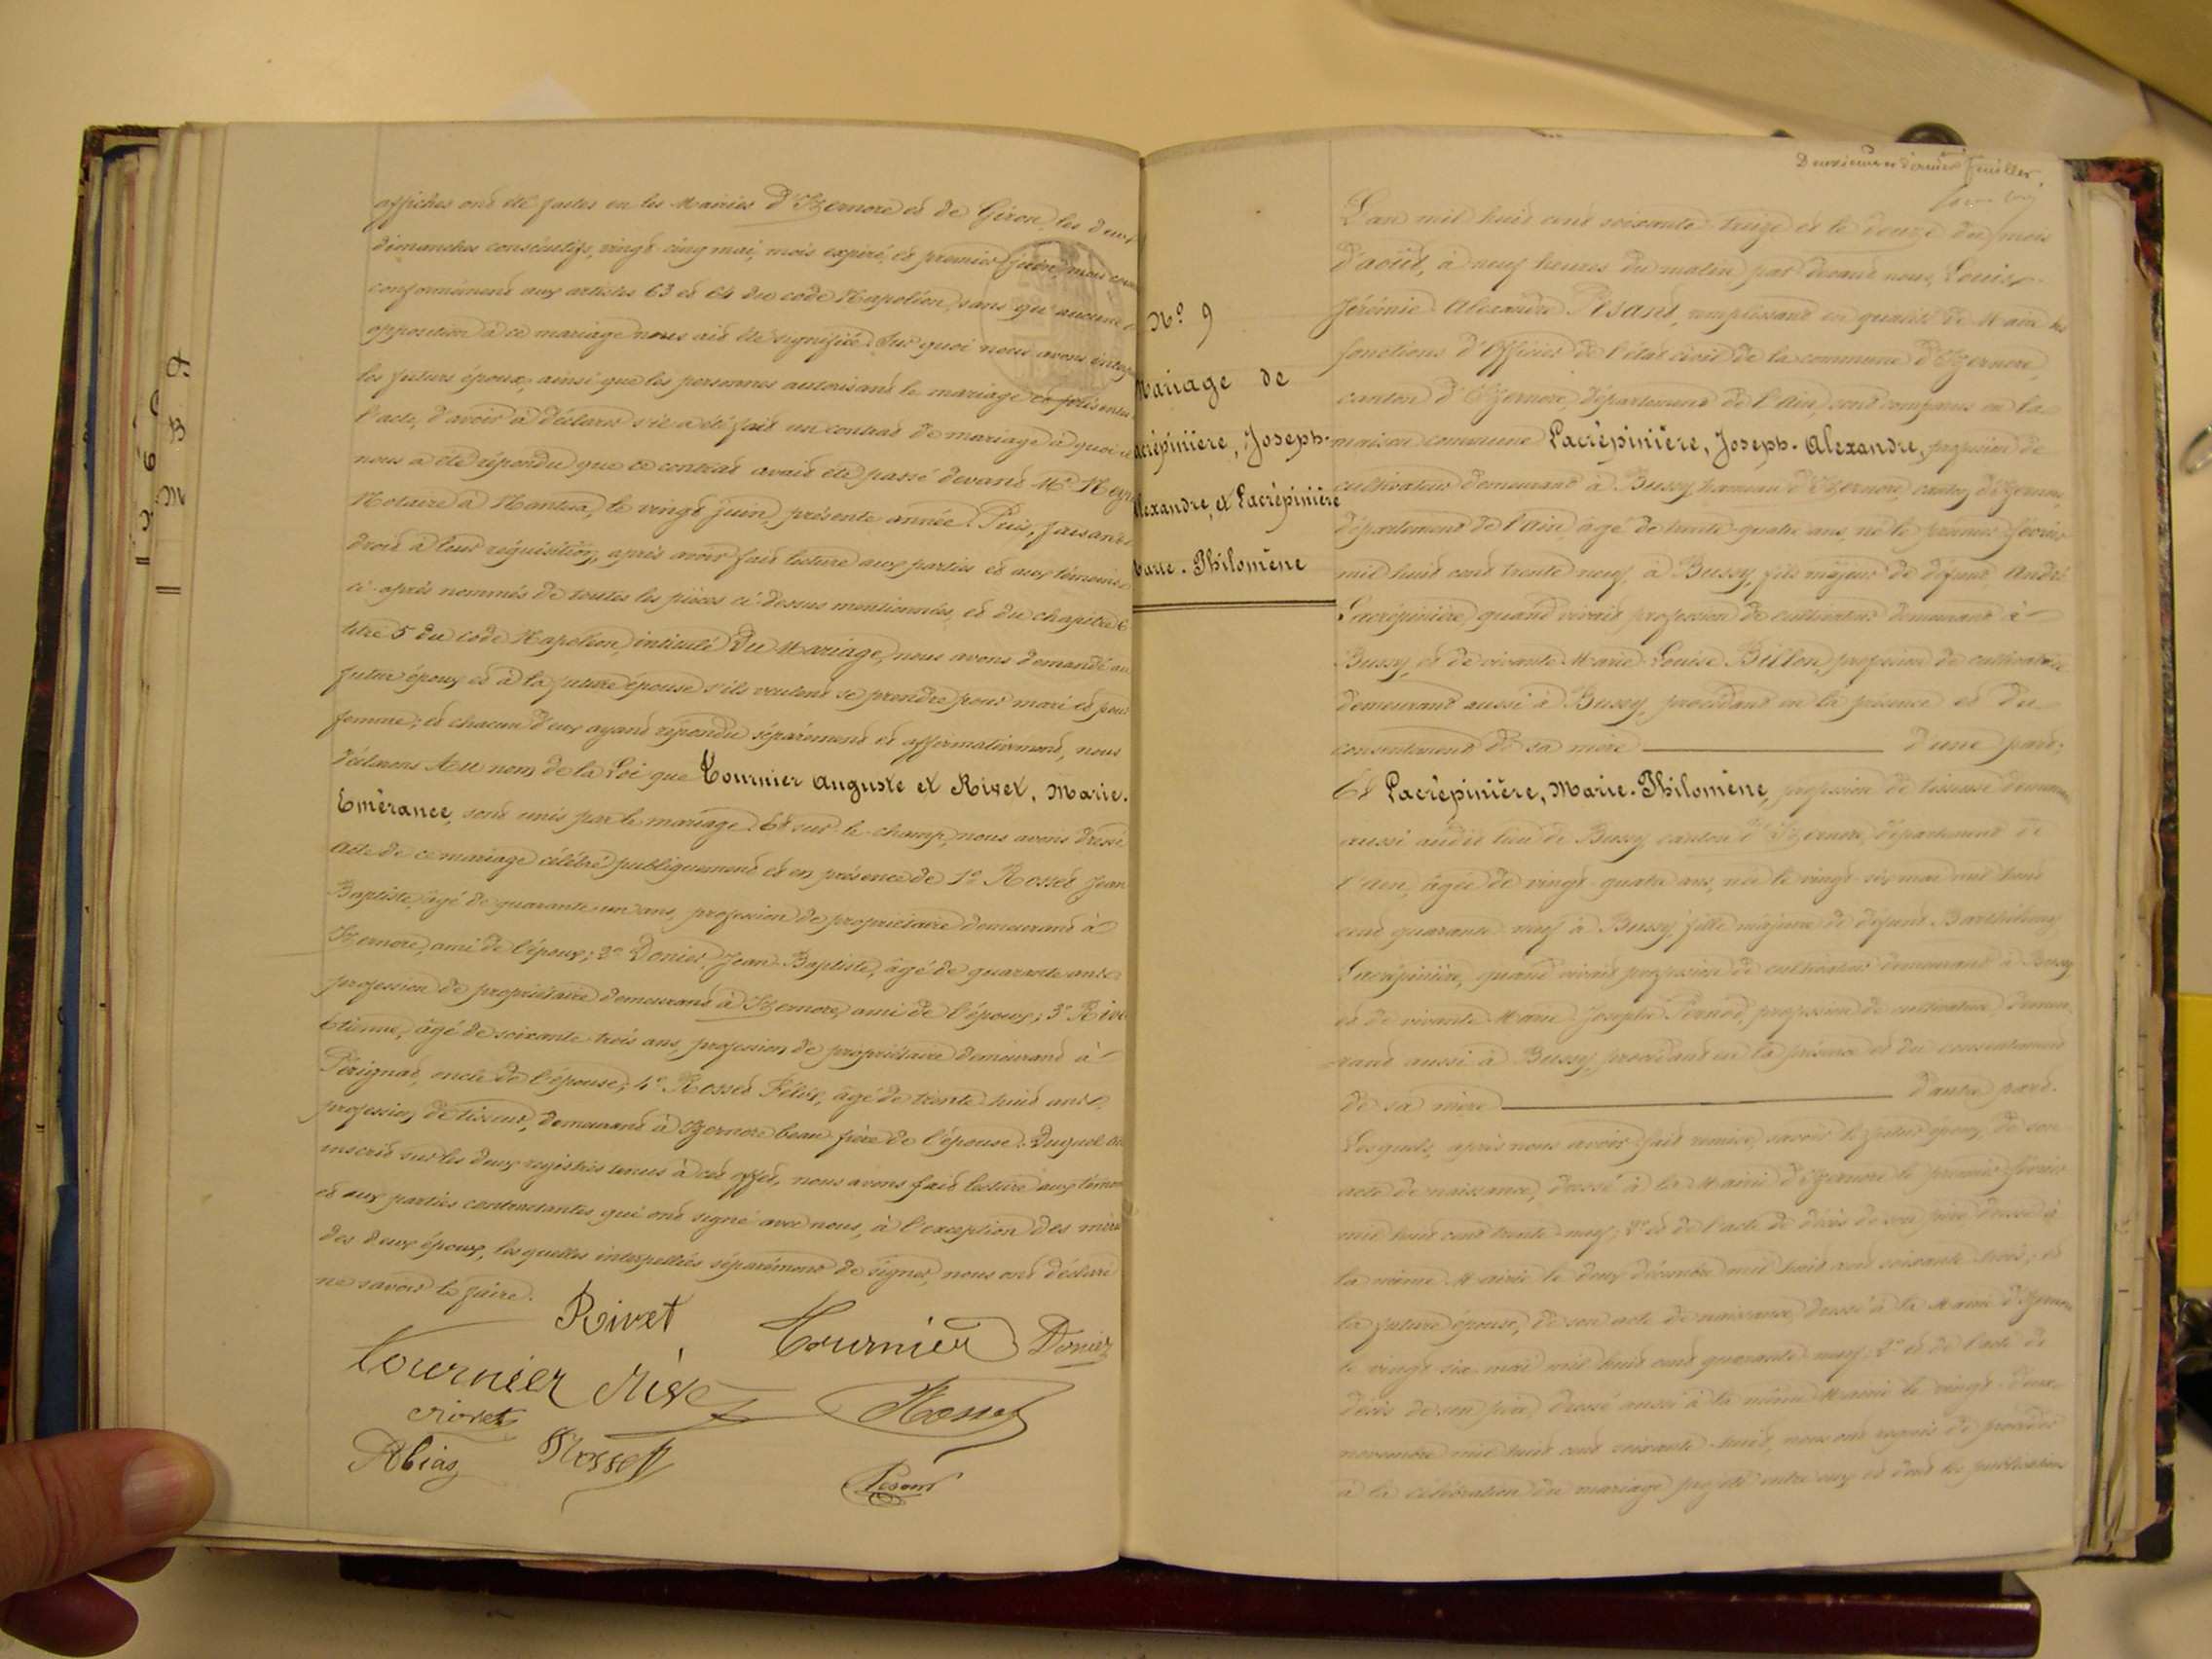 affiches ont été faites en les Mairies d'Izernore et de Giron, les deux
dimanches consécutifs, vingt-cinq mai, mois expiré, et premier juin, mois
conformément aux articles 63 et 64 du code Napoléon, sans qu'aucune
opposition à ce mariage nous ait été signifiée. Sur quoi nous avons
les futurs époux, ainsi que les personnes autorisant le mariage
l'acte, d'avoir à déclarer s'il a été fait un contrat de mariage à quoi il
nous a été répondu que ce contrat avait été passé devant Me
Notaire à Nantua, le vingt juin, présente année. Puis, faisant
droit à leur réquisition, après avoir fait lecture aux parties et aux témoins
ci-après nommés de toutes les pièces ci-dessus mentionnées, et du chapitre 6
titre 5 du code Napoléon, intitulé Du Mariage, nous avons demandé au
futur époux et à la future épouse s'ils veulent se prendre pour mari et pour
femme; et chacun d'eux ayant répondu séparément et affirmativement, nous
déclarons Au nom de la Loi que Tournier Auguste et Rivet, Marie-
Emérance, sont unis par le mariage. Et sur le champ, nous avons dressé
acte de ce mariage célébré publiquement et en présence de 1° Rosset Jean
Baptiste, âgé de quarante un ans, profession de propriétaire demeurant à
Izernore, ami de l'époux; 2° Donier, Jean-Baptiste, âgé de quarante ans
profession de propriétaire demeurant à Izernore, ami de l'époux; 3° Rivet
Etienne, âgé de soixante-trois ans, profession de propriétaire demeurant à
Pérignat, oncle de l'épouse; 4° Rosset Félix, âgé de trente-huit ans,
profession de tisseur, demeurant à Izernore beau-frère de l'épouse. Duquel
inscrit sur les deux registres tenus à cet effet, nous avons fait lecture aux témoins
et aux parties contractantes qui ont signé avec nous, à l'exception des mères
des deux époux, lesquelles interpellées séparément de signer, nous ont déclaré
ne savoir le faire.
Rivet Tournier Donier
Tournier Rivet Rosset
Rivet
Abias Rosset
Pésant
Deuxième et dernier feuillet.
N° 9
Mariage de
Lacrépinière, Joseph-
Alexandre, et Lacrépinière
Marie-Philomène
L'an mil huit cent soixante-treize et le douze du mois
d'août, à neuf heures du matin par devant nous, Louis
Jérémie Alexandre Pésant, remplissant en qualité de Maire les
fonctions d'Officier de l'état civil de la commune d'Izernore,
canton d'Izernore, département de l'Ain, sont comparus en la
maison commune Lacrépinière, Joseph-Alexandre, profession de
cultivateur demeurant à Bussy hameau d'Izernore, canton d'Izernore,
département de l'Ain âgé de trente-quatre ans, né le premier février
mil huit cent trente neuf, à Bussy, fils majeur de défunt André
Lacrépinière, quand vivait profession de cultivateur demeurant à
Bussy, et de vivante Marie-Louise Billon, profession de cultivatrice
demeurant aussi à Bussy, procédant en la présence et du
consentement de sa mère d'une part;
Et Lacrépinière, Marie-Philomène, profession de tisseuse demeurant
aussi audit lieu de Bussy, canton d'Izernore, département de
l'Ain, âgée de vingt-quatre ans, née le vingt-six mai mil huit
cent quarante neuf à Bussy, fille majeure de défunt Barthélemy
Lacrépinière, quand vivait profession de cultivateur demeurant à Bussy
et de vivante Marie-Josephte Pernod, profession de cultivatrice demeu-
rant aussi à Bussy, procédant en la présence et du consentement
de sa mère d'autre part.
Lesquels, après nous avoir fait remise, savoir le futur époux, de son
acte de naissance, dressé à la Mairie d'Izernore le premier février
mil huit cent trente neuf; 2° et de l'acte de décès de son père, dressé à
la même Mairie le deux décembre mil huit cent soixante-trois; et
la future épouse, de son acte de naissance, dressé à la Mairie d'Izernore
le vingt-six mai mil huit cent quarante neuf; 2° et de l'acte de
décès de son père, dressé aussi à la même Mairie le vingt-deux
novembre mil huit cent soixante-huit, nous ont requis de procéder
à la célébration du mariage projeté entre eux et dont les publications